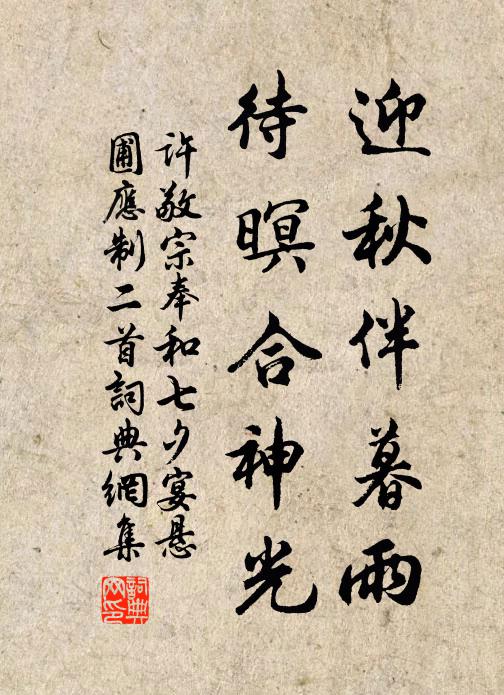 迎秋伴暮雨
待暝合神光
許敬宗奉和七夕宴悬
圃應制二首詞典網集
詞典网印